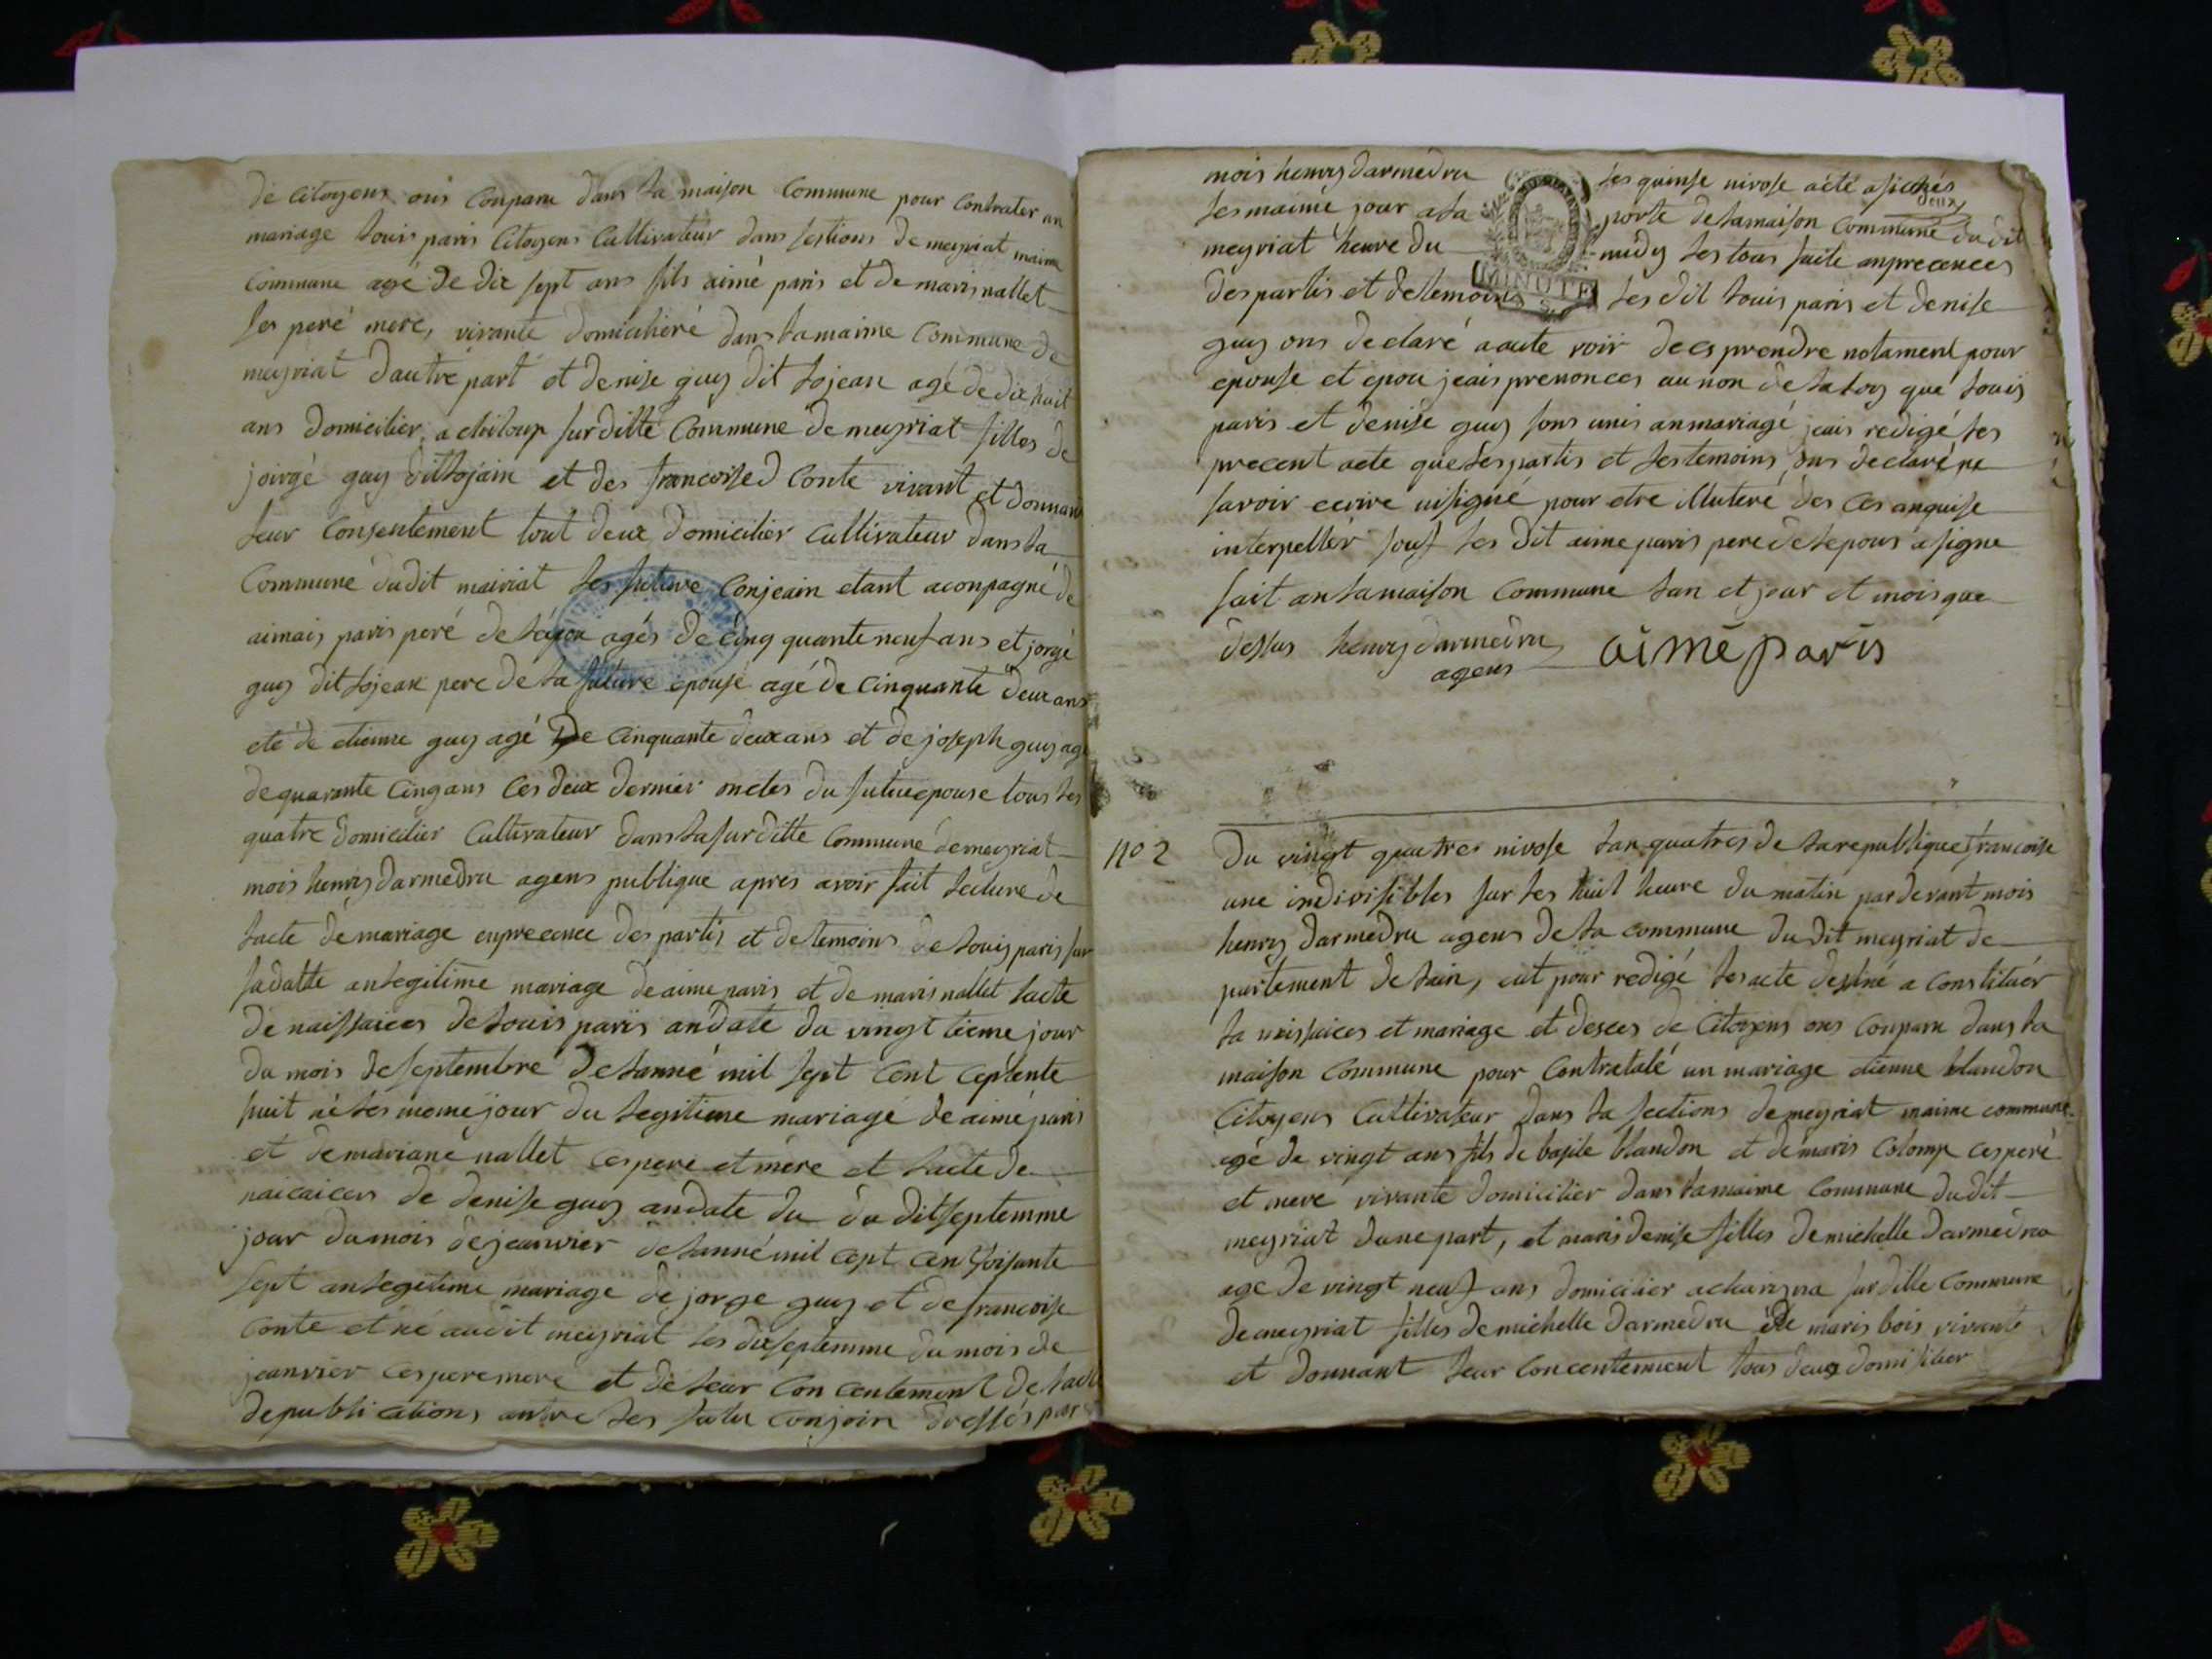 de citoyens ons conparu dans la maison commune pour contrater un
mariage louis paris citoyens cultivateur dans sestions de meyriat maime
commune agé de dix sept ans fils aimé paris et de maris nallet
ses peré mere, vivante domicilieré dans la maime commune de
meyriat dautre part et denise guy dit lojean agé de dix huit
ans domicilier a chiloup surditte commune de meyriat filles de
joirge guy dit lojain et des francoised conte vivant et donnant
leur consentement tout deux domicilier cultivateur dans la
commune dudit mairiat les future conjean etant aconpagné de
aimais paris peré de agés de cinq quante neuf ans et jorge
guy dit lojean pere de la future epouse agé de cinquante deux ans
eté de etienne guy agé de cinquante deux ans et de joseph guy agé
de quarante cinq ans ces deux dernier oncles du future epouse tous les
quatre domicilier cultivateur dans la surditte commune de meyriat
mois henry darmedru agens publique apres avoir fait lecture de
lacte de mariage enprecence des partis et de temoins de louis paris sur
sadatte anlegitime mariage de aime paris et de maris nallet lacte
de naissaices de louis paris andate du vingt tieme jour
du mois de septembre de lanné mil sept cent ceptente
huit né les meme jour du legitieme mariage de aimé paris
et de mariane nallet ces pere et mere et lacte de
naicaices de denise guy andate du du dit septemme
jour du mois de jeanvier de lanné mil cept cen soisante
sept anlegetime mariage de jorge guy et de francoise
conte et né audit meyriat les dixseptemme du mois de
jeanvier ces pere mere et de leur concentement de lacte
de publications antre les futu conjoin dressés par
mois henry darmedru les quinse nivose aété afichés
deux
les maime jour a la porte de la maison commune dudit
meyriat heure du midy les tous faite anprecences
des partis et de temoins les dit louis paris et denise
MINUTE
guy ons declaré aaute voir deces prendre notament pour
epouse et epou jeais prenonces au non de la loy que louis
paris et denise guy sons unis anmariagé jeais redigé les
precent acte que les partis et les temoins ons declaré ne
savoir ecrire nisigné pour etre illuteré des ces anquise
interpeller souf les dit aime paris pere de lepous a signe
fait an la maison commune lan et jour et mois que
dessus henry darmedru aimé paris
agens
no 2 Du vingt quatres nivose lan quatres de la republique francoise
une indivisibles sur les huit heure du matin pardevant mois
henry darmedru agens de la commune dudit meyriat de
partement de lain, eut pour redigé les acte destiné a constituér
la naissaices et mariage et desces de citoyens ons conparu dans la
maison commune pour contrataté un mariage etienne blandon
citoyens cultivateur dans la sections de meyriat maime commune
agé de vingt ans fils de basile blandon et de maris colomp ces peré
et mere vivante domicilier dans la maime commune dudit
meyriat dune part, et maris denise filles de michelle darmedru
age de vingt neuf ans domicilier a surditte commune
de meyriat filles de michelle darmedru et de maris bois vivant
et donnant leur concentement tous deux domisilier